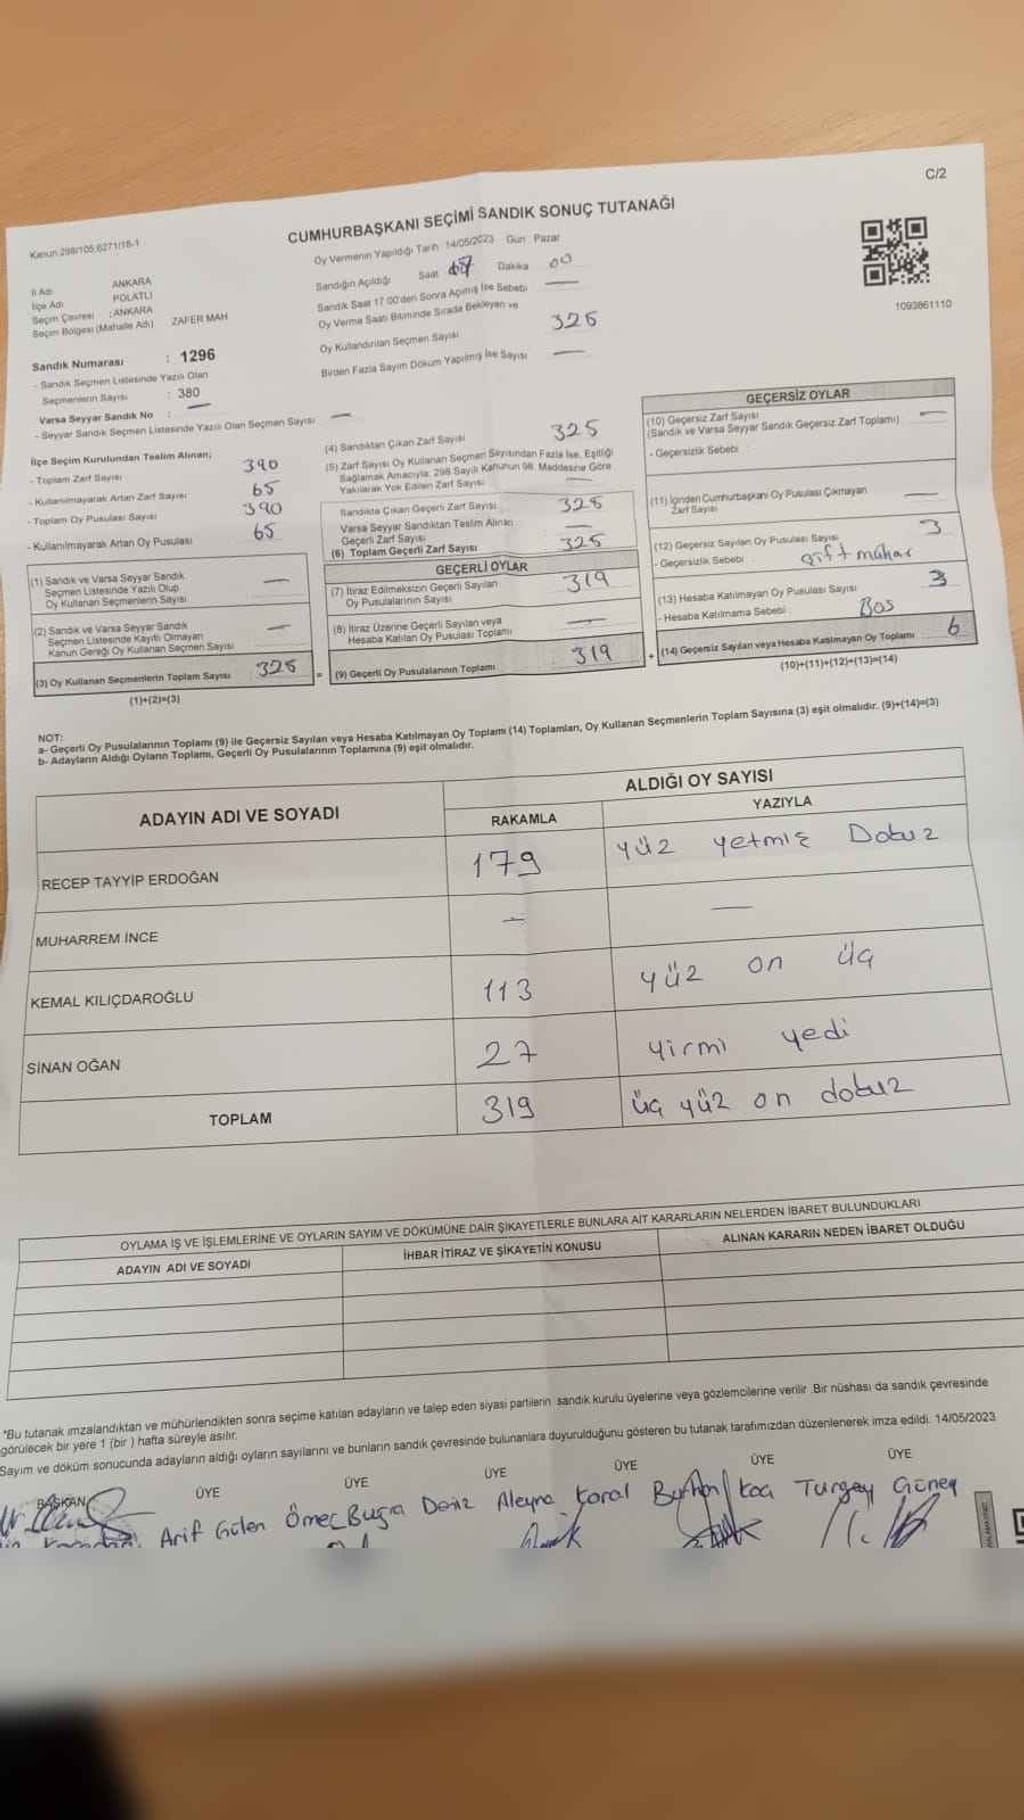 C/2
Kanun:298/105.6271/18-1
CUMHURBAŞKANI SEÇİMİ SANDIK SONUÇ TUTANAĞI
Oy Vermenin Yapıldığı Tarih 14/05/2023 Gün: Pazar
İl Adı ANKARA
İlçe Adı POLATLI
Seçim Çevresi : ANKARA
Seçim Bölgesi (Mahalle Adı) ZAFER MAH
Sandığın Açıldığı Saat Dakika 00
Sandık Saat 17:00'den Sonra Açılmış İse Sebebi —
Oy Verme Saati Bitiminde Sırada Bekleyen ve
Oy Kullandırılan Seçmen Sayısı 325
Birden Fazla Sayım Döküm Yapılmış İse Sayısı —
1093861110
Sandık Numarası : 1296
- Sandık Seçmen Listesinde Yazılı Olan
Seçmenlerin Sayısı : 380
Varsa Seyyar Sandık No : —
- Seyyar Sandık Seçmen Listesinde Yazılı Olan Seçmen Sayısı —
İlçe Seçim Kurulundan Teslim Alınan;
- Toplam Zarf Sayısı 390
- Kullanılmayarak Artan Zarf Sayısı 65
- Toplam Oy Pusulası Sayısı 390
- Kullanılmayarak Artan Oy Pusulası 65
(1) Sandık ve Varsa Seyyar Sandık
Seçmen Listesinde Yazılı Olup
Oy Kullanan Seçmenlerin Sayısı —
(2) Sandık ve Varsa Seyyar Sandık
Seçmen Listesinde Kayıtlı Olmayan
Kanun Gereği Oy Kullanan Seçmen Sayısı —
(3) Oy Kullanan Seçmenlerin Toplam Sayısı 325
(1)+(2)=(3)
(4) Sandıktan Çıkan Zarf Sayısı 325
(5) Zarf Sayısı Oy Kullanan Seçmen Sayısından Fazla İse, Eşitliği
Sağlamak Amacıyla; 298 Sayılı Kanunun 98. Maddesine Göre
Yakılarak Yok Edilen Zarf Sayısı —
Sandıkta Çıkan Geçerli Zarf Sayısı 325
Varsa Seyyar Sandıktan Teslim Alınan
Geçerli Zarf Sayısı —
(6) Toplam Geçerli Zarf Sayısı 325
GEÇERLİ OYLAR
(7) İtiraz Edilmeksizin Geçerli Sayılan
Oy Pusulalarının Sayısı 319
(8) İtiraz Üzerine Geçerli Sayılan veya
Hesaba Katılan Oy Pusulası Toplamı —
= (9) Geçerli Oy Pusulalarının Toplamı 319
GEÇERSİZ OYLAR
(10) Geçersiz Zarf Sayısı —
(Sandık ve Varsa Seyyar Sandık Geçersiz Zarf Toplamı)
- Geçersizlik Sebebi
(11) İçinden Cumhurbaşkanı Oy Pusulası Çıkmayan
Zarf Sayısı —
(12) Geçersiz Sayılan Oy Pusulası Sayısı 3
- Geçersizlik Sebebi çift mühür
(13) Hesaba Katılmayan Oy Pusulası Sayısı 3
- Hesaba Katılmama Sebebi Boş
+ (14) Geçersiz Sayılan veya Hesaba Katılmayan Oy Toplamı 6
(10)+(11)+(12)+(13)=(14)
NOT:
a- Geçerli Oy Pusulalarının Toplamı (9) ile Geçersiz Sayılan veya Hesaba Katılmayan Oy Toplamı (14) Toplamları, Oy Kullanan Seçmenlerin Toplam Sayısına (3) eşit olmalıdır. (9)+(14)=(3)
b- Adayların Aldığı Oyların Toplamı, Geçerli Oy Pusulalarının Toplamına (9) eşit olmalıdır.
ADAYIN ADI VE SOYADI ALDIĞI OY SAYISI
RAKAMLA YAZIYLA
RECEP TAYYİP ERDOĞAN 179 yüz yetmiş Dokuz
MUHARREM İNCE — —
KEMAL KILIÇDAROĞLU 113 yüz on üç
SİNAN OĞAN 27 yirmi yedi
TOPLAM 319 üç yüz on dokuz
OYLAMA İŞ VE İŞLEMLERİNE VE OYLARIN SAYIM VE DÖKÜMÜNE DAİR ŞİKAYETLERLE BUNLARA AİT KARARLARIN NELERDEN İBARET BULUNDUKLARI
ADAYIN ADI VE SOYADI İHBAR İTİRAZ VE ŞİKAYETİN KONUSU ALINAN KARARIN NEDEN İBARET OLDUĞU
*Bu tutanak imzalandıktan ve mühürlendikten sonra seçime katılan adayların ve talep eden siyasi partilerin sandık kurulu üyelerine veya gözlemcilerine verilir. Bir nüshası da sandık çevresinde
görülecek bir yere 1 (bir ) hafta süreyle asılır.
Sayım ve döküm sonucunda adayların aldığı oyların sayılarını ve bunların sandık çevresinde bulunanlara duyurulduğunu gösteren bu tutanak tarafımızdan düzenlenerek imza edildi. 14/05/2023
BAŞKAN ÜYE ÜYE ÜYE ÜYE ÜYE ÜYE
Arif Gülen Ömer Buğra Deniz Aleyna Koral Burhan Koç Turgay Güneş